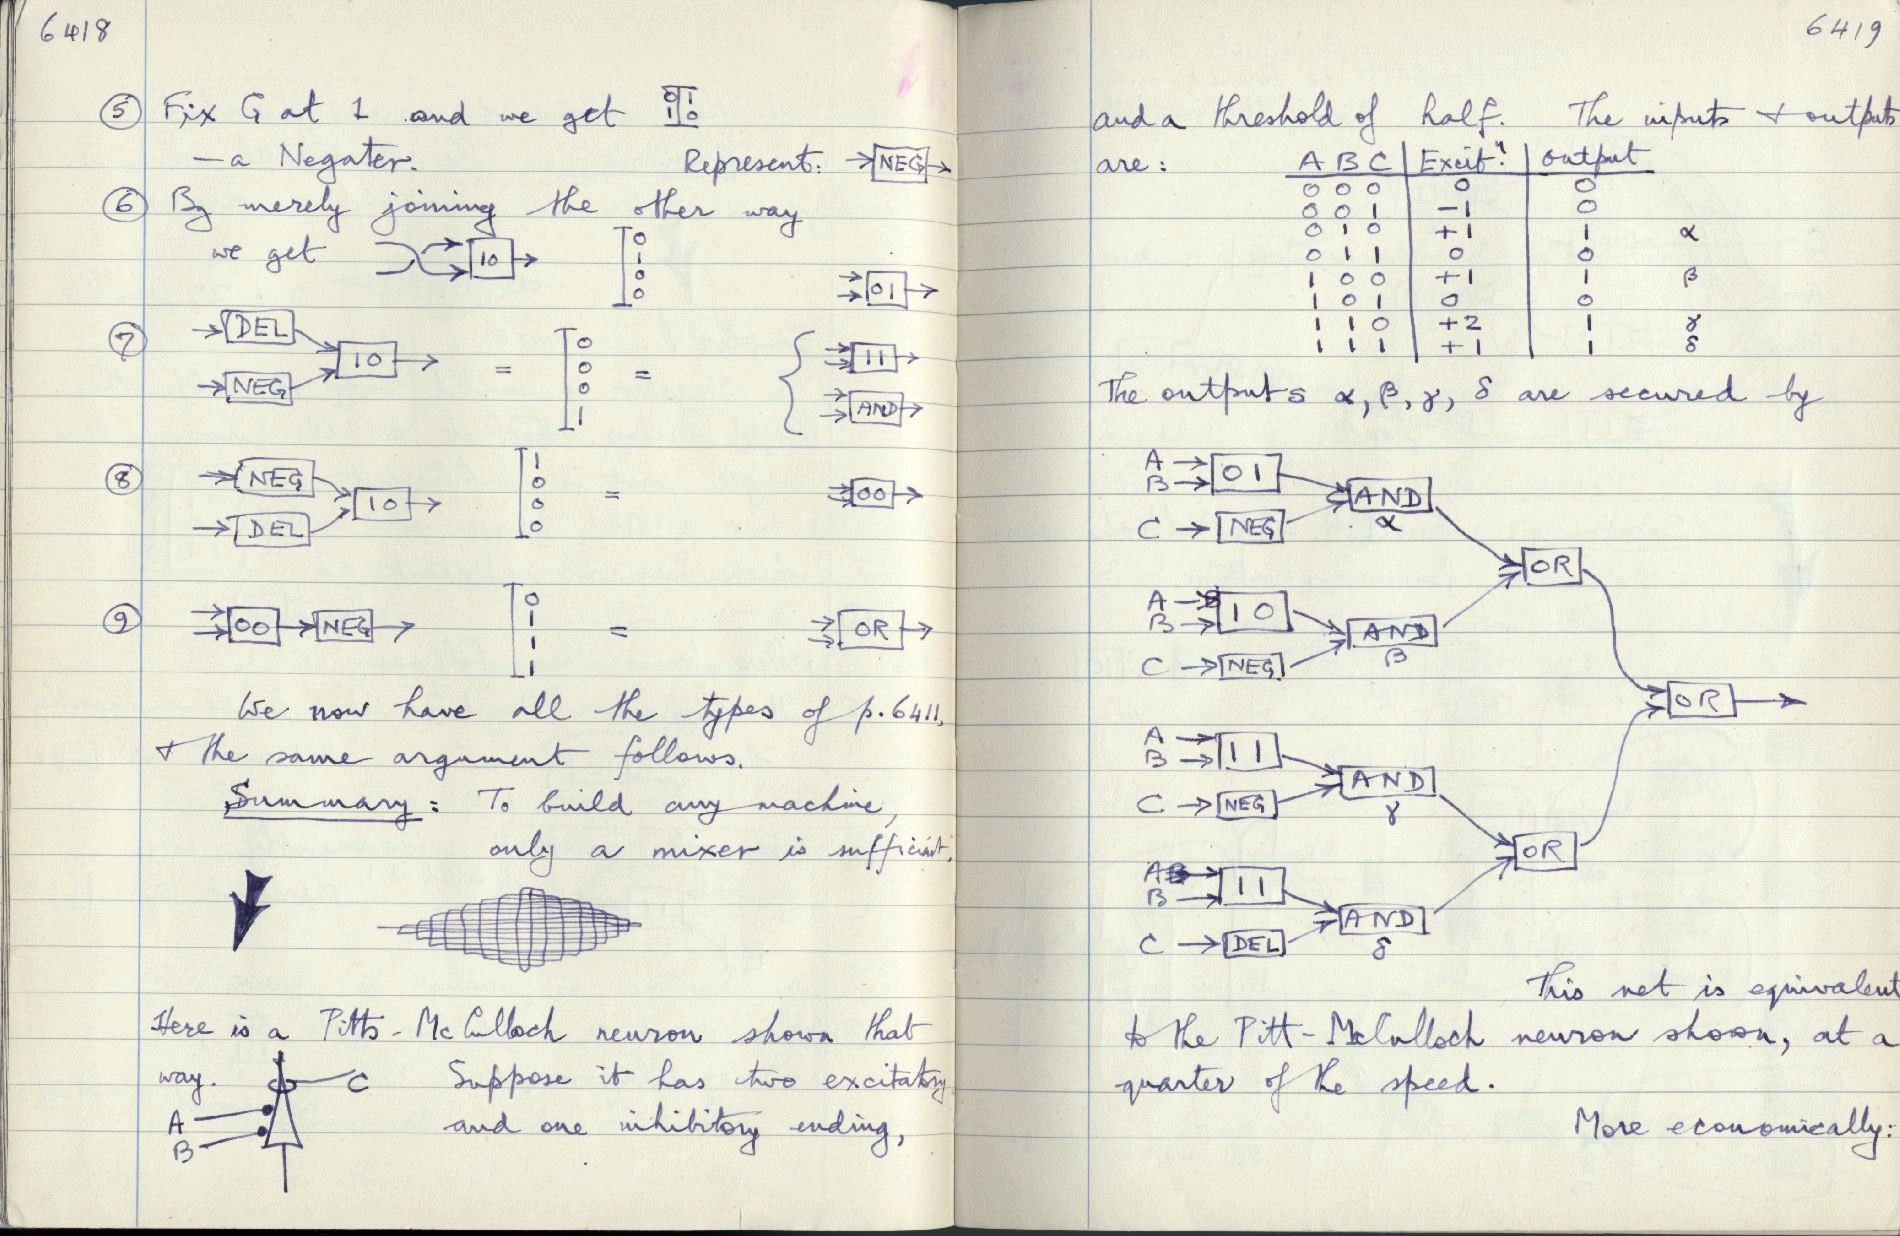 6418
⑤ Fix G at 1 and we get 0 1
1 0
— a Negater. Represent: NEG
⑥ By merely joining the other way
we get 10 0
1
0
0
01
⑦ DEL
NEG
10 = 0
0
0
1 = 11
AND
⑧ NEG
DEL
10 1
0
0
0 = 00
⑨ 00 NEG 0
1
1
1 = OR
We now have all the types of p. 6411,
+ the same argument follows.
Summary: To build any machine,
only a mixer is sufficient.
Here is a Pitts-McCulloch neuron shown that
way. C Suppose it has two excitatory
A and one inhibitory ending,
B
6419
and a threshold of half. The inputs + outputs
are: A B C Excitn. output
0 0 0 0 0
0 0 1 −1 0
0 1 0 +1 1 α
0 1 1 0 0
1 0 0 +1 1 β
1 0 1 0 0
1 1 0 +2 1 γ
1 1 1 +1 1 δ
The outputs α, β, γ, δ are secured by
A
B 01
C NEG
AND
α
OR
A
B 10
C NEG
AND
β
OR
A
B 11
C NEG
AND
γ
OR
A
B 11
C DEL
AND
δ
This net is equivalent
to the Pitt-McCulloch neuron shown, at a
quarter of the speed.
More economically: